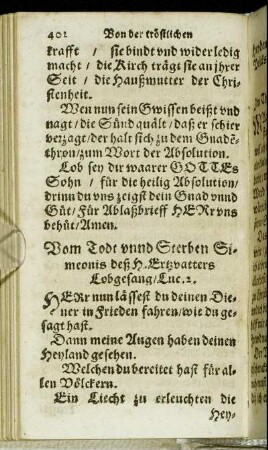 401 Von der tröstlichen
krafft / sie bindt vnd wider ledig
macht / die Kirch trägt sie an jhrer
Seit / die Haußmutter der Chri-
stenheit.
Wen nun sein Gwissen beißt vnd
nagt / die Sünd quält / daß er schier
verzagt / der halt sich zu dem Gnadē-
thron / zum Wort der Absolution.
Lob sey dir waarer GOTTES
Sohn / für die heilig Absolution /
drinn du vns zeigst dein Gnad vnnd
Güt / Für Ablaßbrieff HERr vns
behüt / Amen.
Vom Todt vnnd Sterben Si-
meonis deß H. Ertzvatters
Lobgesang / Luc. 2.
HERr nun lässest du deinen Die-
ner in Frieden fahren / wie du ge-
sagt hast.
Dann meine Augen haben deinen
Heyland gesehen.
Welchen du bereitet hast für al-
len Völckern.
Ein Liecht zu erleuchten die
Hey-